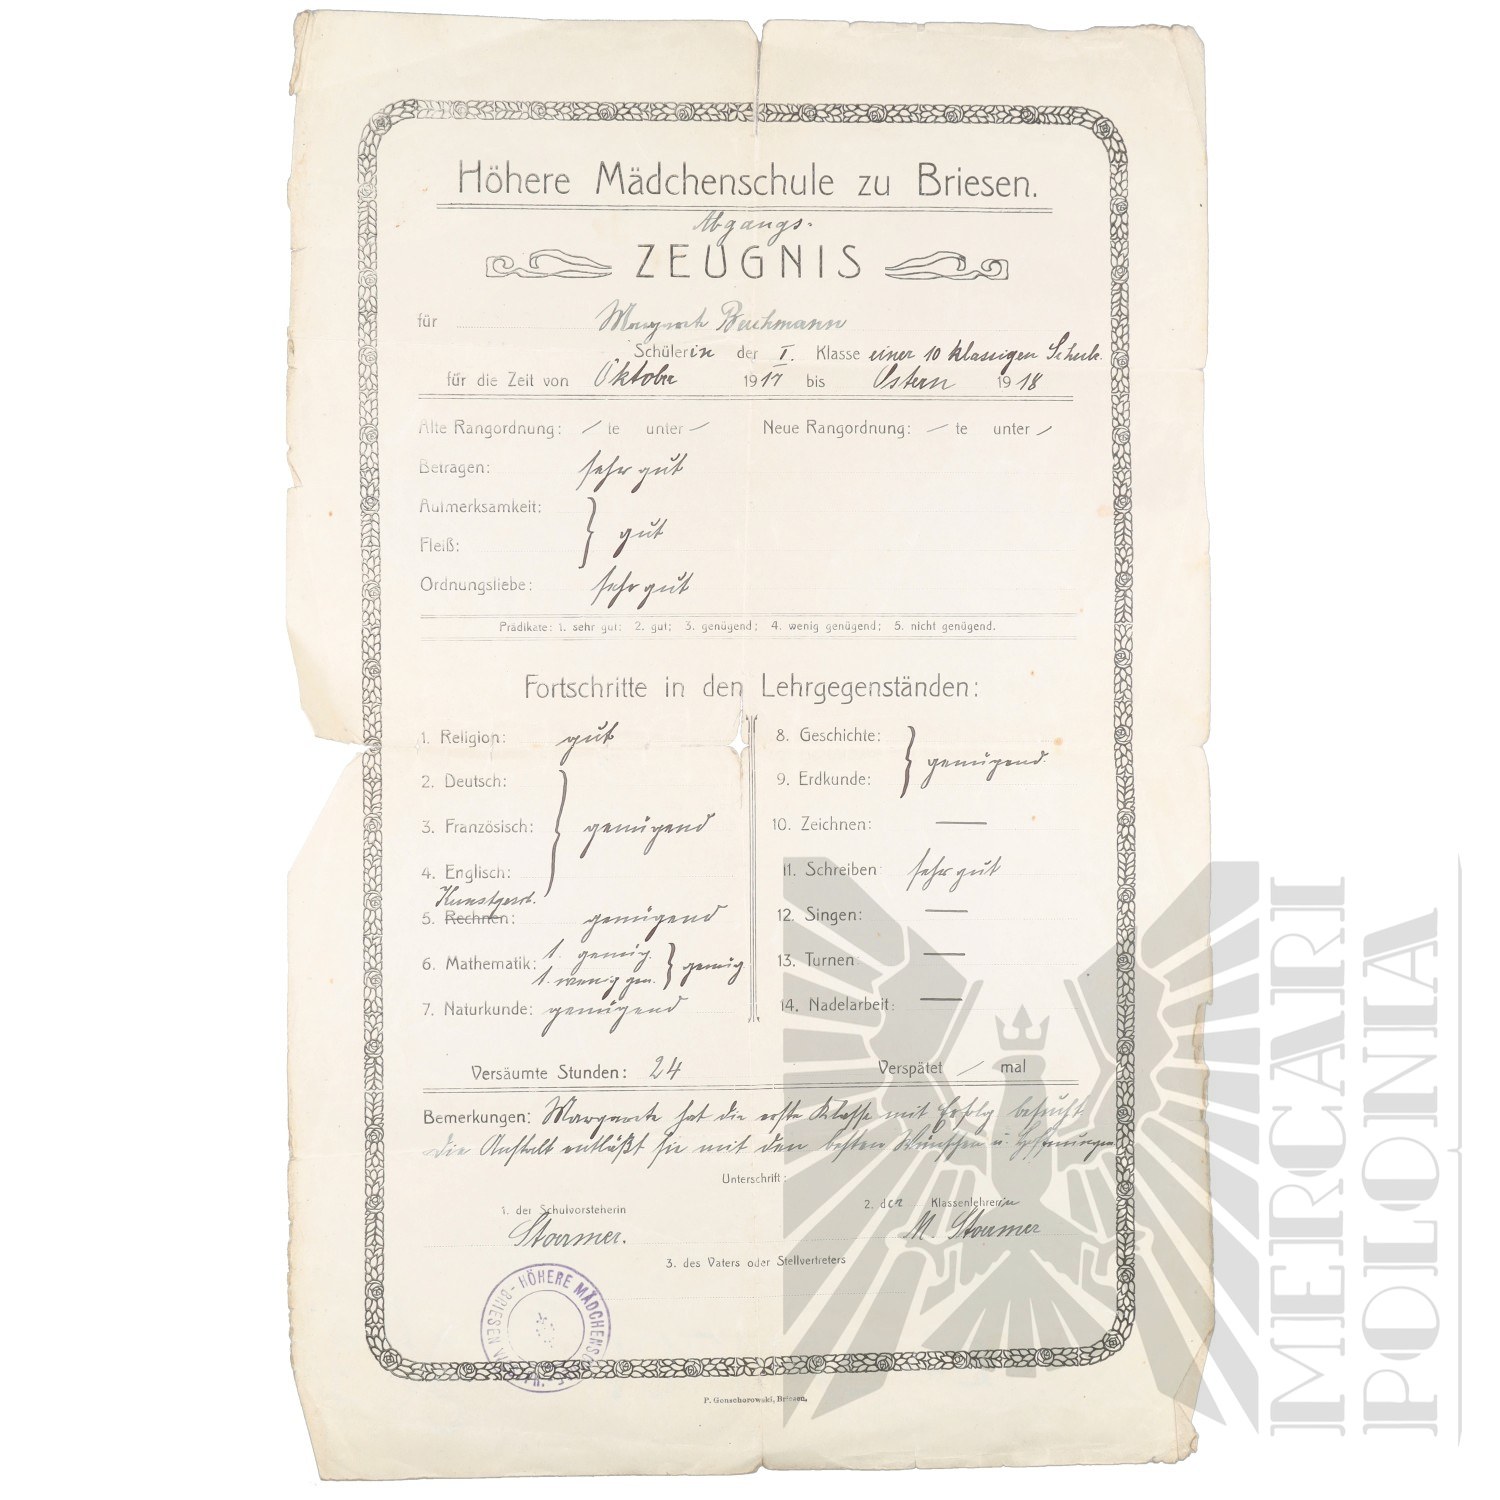 Höhere Mädchenschule zu Briesen.
Abgangs-
ZEUGNIS
für Margarete Buchmann
Schülerin der I. Klasse einer 10 klassigen Schule.
für die Zeit von Oktober 1917 bis Ostern 1918
Alte Rangordnung: / te unter / Neue Rangordnung: / te unter /
Betragen: sehr gut
Aufmerksamkeit:
gut
Fleiß:
Ordnungsliebe: sehr gut
Prädikate: 1. sehr gut; 2. gut; 3. genügend; 4. wenig genügend; 5. nicht genügend.
Fortschritte in den Lehrgegenständen:
1. Religion: gut
2. Deutsch:
3. Französisch: genügend
4. Englisch:
Kunstgesch.
5. Rechnen: genügend
6. Mathematik: 1. genüg. } genüg
1. wenig gen.
7. Naturkunde: genügend
8. Geschichte:
genügend.
9. Erdkunde:
10. Zeichnen: —
11. Schreiben: sehr gut
12. Singen: —
13. Turnen: —
14. Nadelarbeit: —
Versäumte Stunden: 24 Verspätet / mal
Bemerkungen: Margarete hat die erste Klasse mit Erfolg besucht
die Anstalt entläßt sie mit den besten Wünschen u. Hoffnungen
Unterschrift:
1. der Schulvorsteherin 2. der Klassenlehrerin
Starmer. M. Starmer
3. des Vaters oder Stellvertreters
HÖHERE MÄDCHENSCHULE BRIESEN
P. Gonschorowski, Briesen.
MERCARI
POLONIA